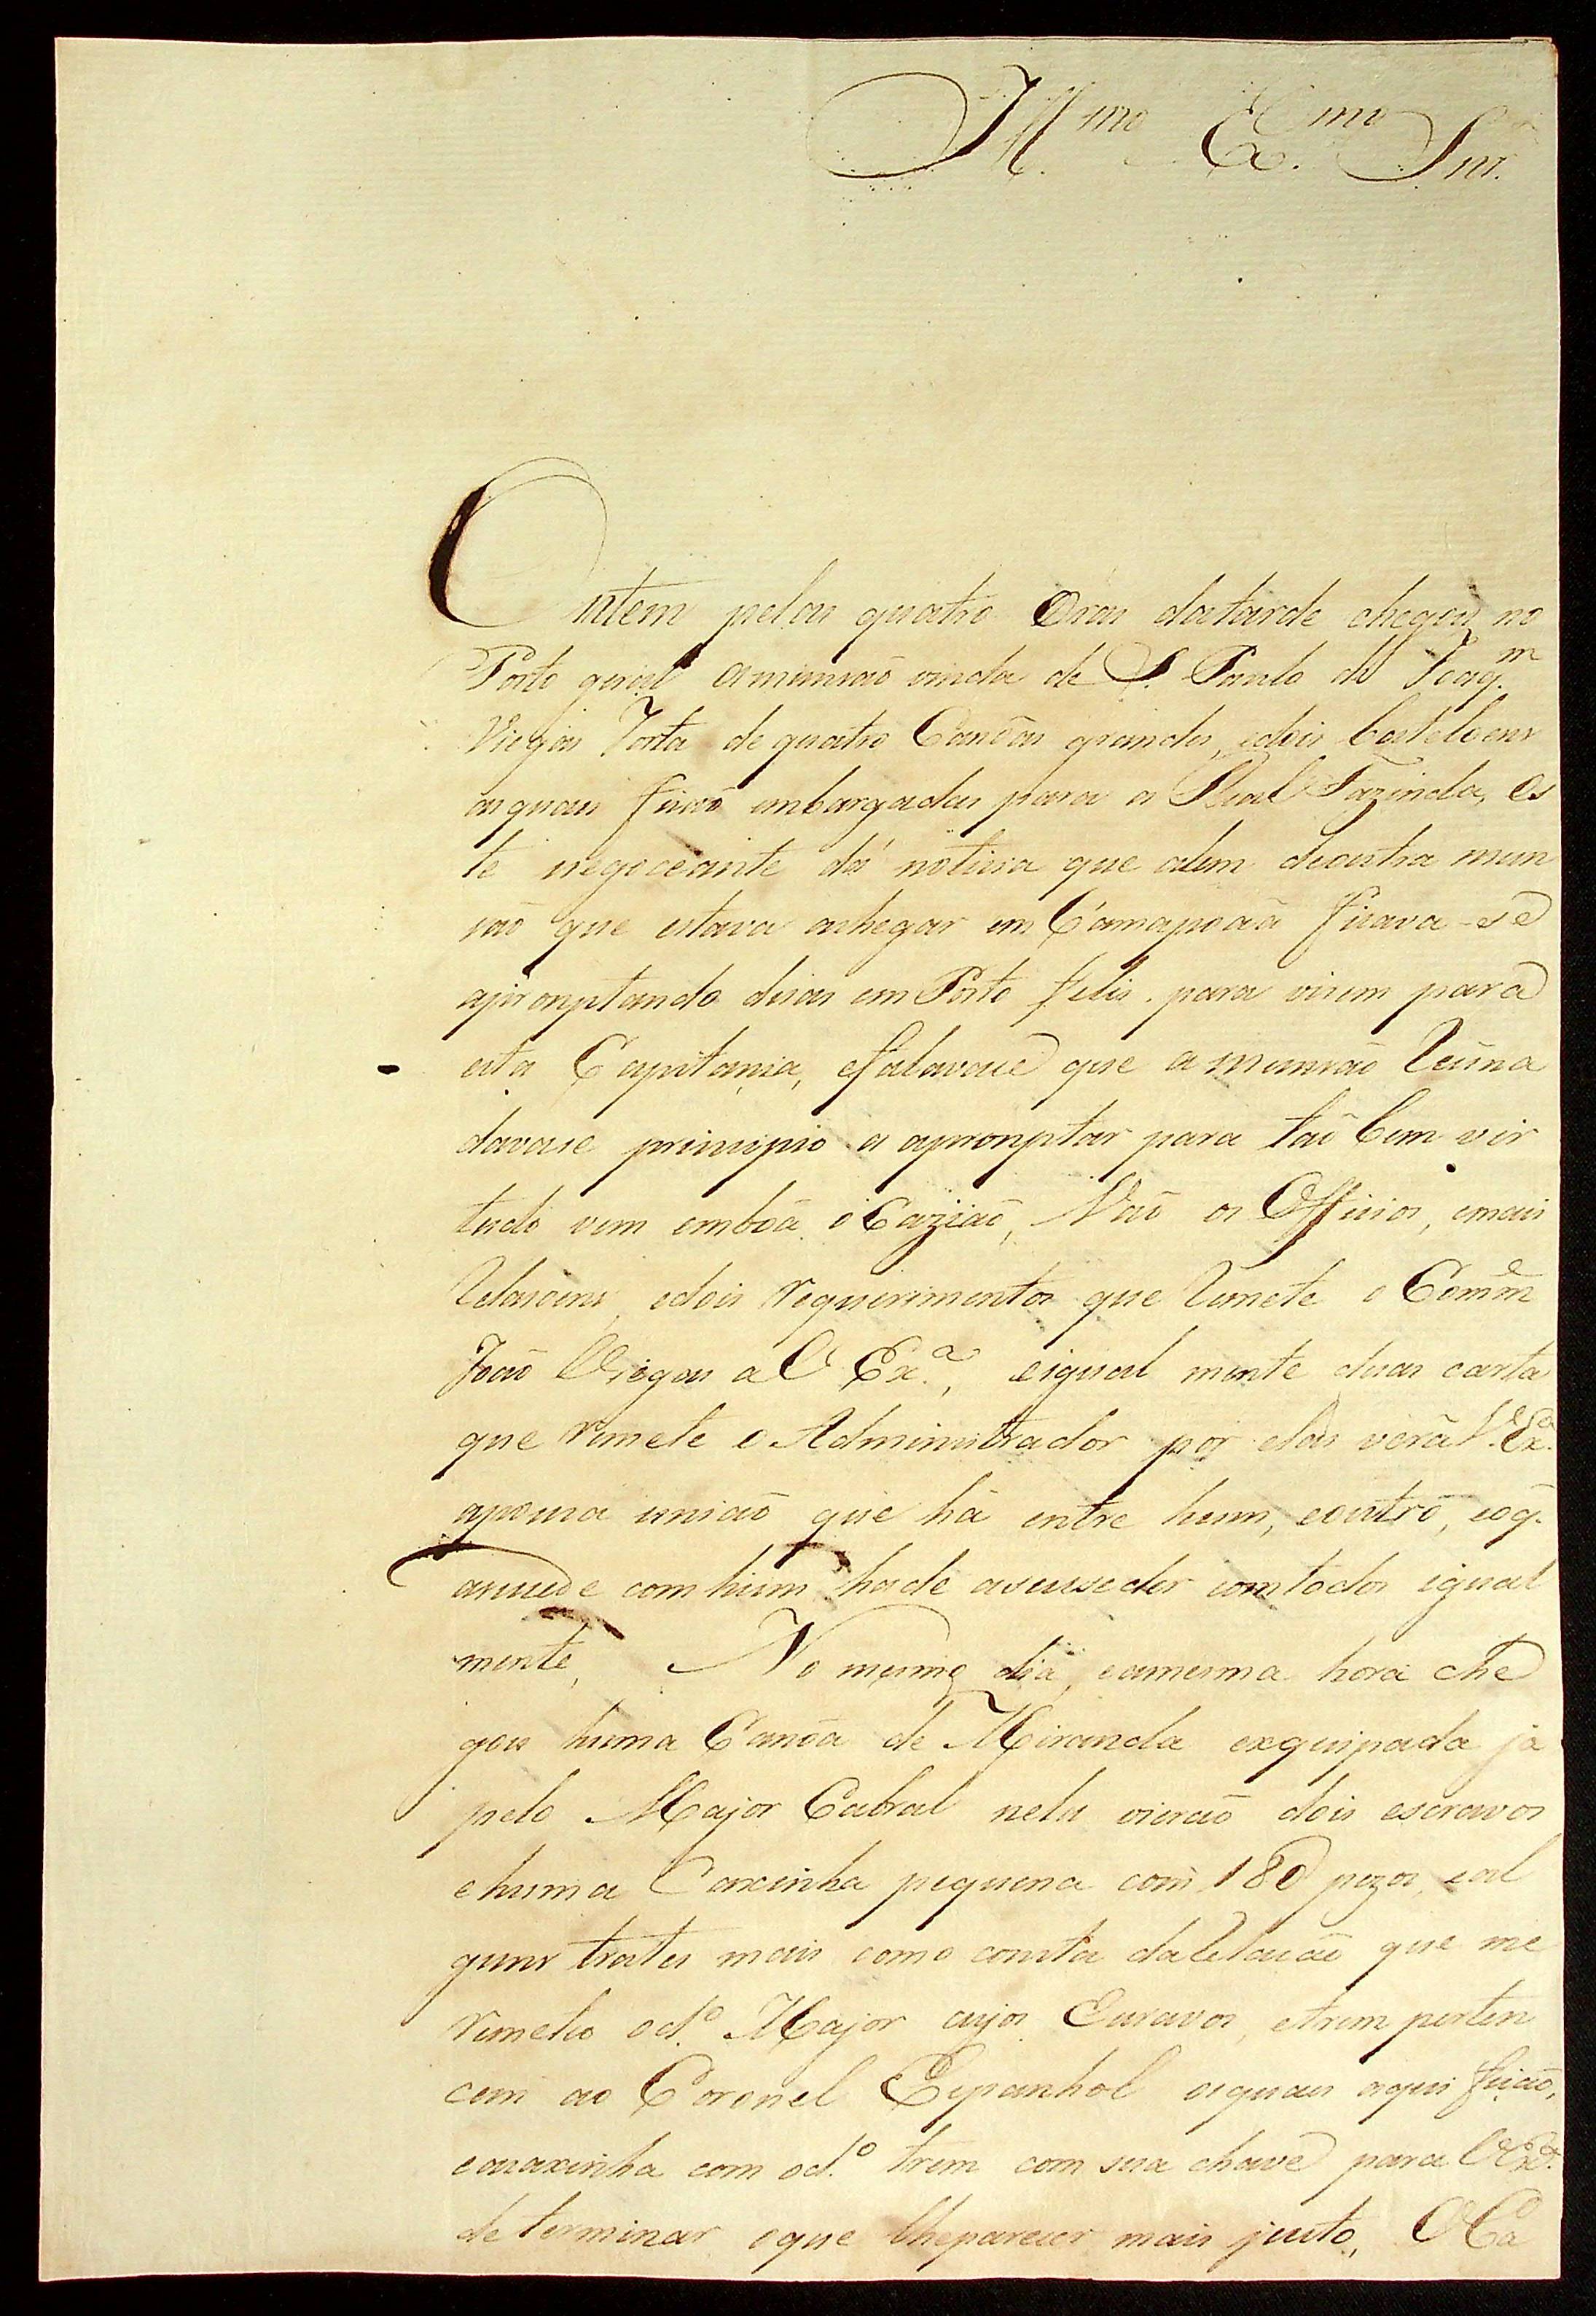 Ill.mo Ex.mo Snr.
Ontem pelas quatro Oras datarde chegou no
Porto geral Amunsaõ vinda de S. Paulo de Joaq.m
Viegas Torta de quatro Canôas grandes, edois bateloens
asquaes ficaõ embargadas para a Rial Fazenda, Es
te negoceante dá noticia que alem deoutra mun
saõ que estava achegar em Camapoãa ficava-se
apronptando duas em Porto felis para virem para
esta Capitania, efalavase que a munsaõ Reúna
davase principio a apronptar para taõ bem vir
tudo vem emboã oCaziaõ, Vaõ os Officios, emais
Relasoens, edois requerimentos que Remete o Comm.e
Joaõ Viegas a V Ex.a, eigual mente duas carta
que remete o Administrador por elas verá V. Ex.a
apouca uniaõ que há entre hum, eoutro, eoq.
asucede com hum hade asuseder comtodos igual
mente, No mesmo dia, eamesma hora che
gou huma Canôa de Miranda exquipada já
pelo Major Cabral nela vieraõ dois escravos
ehuma Caxinha piquena com 180 pezos, eal
guns trastes mais como consta daRelacaõ que me
remeteo od.o Major cujos Escravos, etrem perten
cem ao Coronel Espanhol osquaes aqui ficaõ,
eacaxinha com od.o trem com sua chave para V Ex.a
determinar oque lheparecer mais justo, O Ca